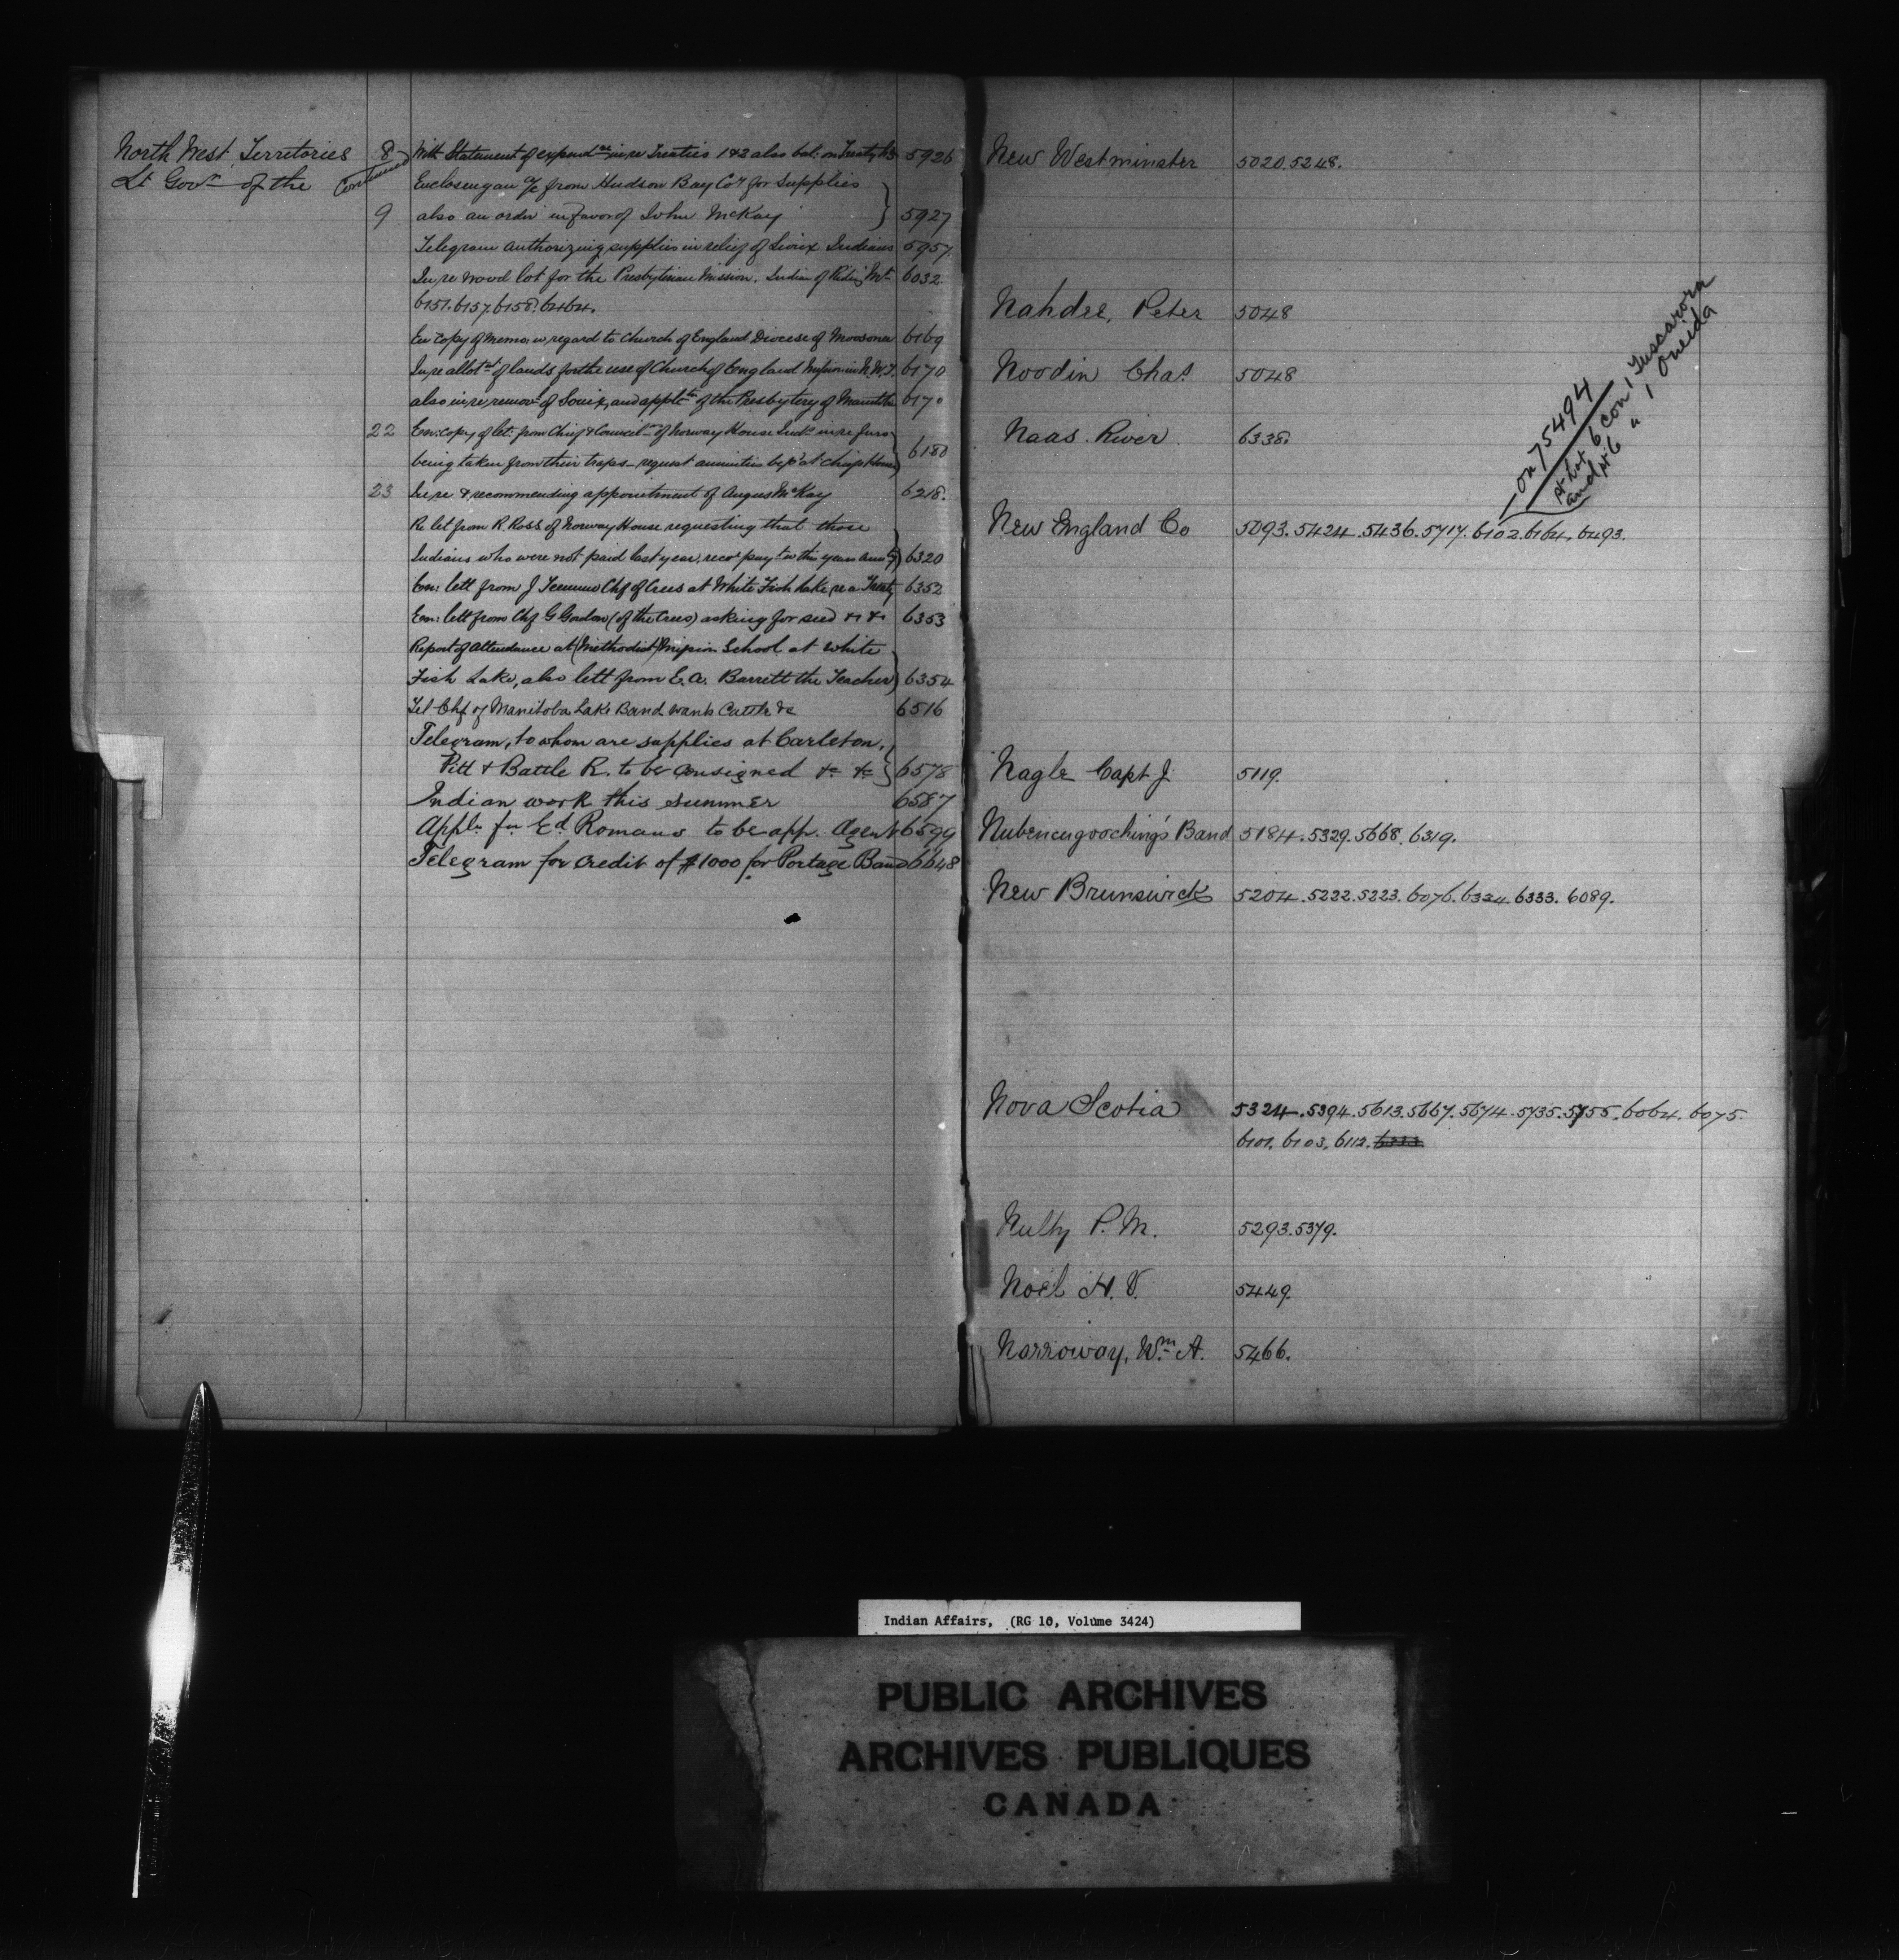 North West Territories 8 With Statement of expend.re in re Treaties 1&2 also bal: on Treaty No 3 5926
Lt Gov.r of the Continued Enclosing an a/c from Hudson Bay Coy for Supplies
9 also an order in favor of John McKay 5927
Telegram authorizing supplies in relief of Sioux Indians 5957.
In re wood lot for the Presbyterian Mission. Indian of Riding Mt. 6032.
6151.6157.6158.6464.
En copy of Memo: in regard to Church of England Diocese of Moosonee 6169
In re allot.t of lands for the use of Church of England Mission in N.W.T. 6170
also in re, remov.l of Souix, and applt.n of the Presbytery of Manitoba 6170
22 En: copy of let: from Chief & Council.rs of Norway House Ind.s in re furs
being taken from their traps – request annuities be p.d at Chiefs House 6180
23 In re & recommending appointment of Angus McKay 6218.
Re let from R. Ross of Norway House requesting that those
Indians who were not paid last year, rece. payt. in this years annt.y 6320
En: lett from J Chf of Crees at White Fish Lake, re a Treaty 6352
En: lett from Chf G Gordon (of the Crees) asking for seed &c &c 6353
Report of Attendance at (Methodist) Mission School at White
Fish Lake, also lett from E.A. Barrett the Teacher 6354
Tel Chf of Manitoba Lake Band wants Cattle &c 6516
Telegram, to whom are supplies at Carleton,
Pitt & Battle R. to be consigned &c &c 6578
Indian work this summer 6587
Appl.n for Ed Romans to be app. Agent 6599
Telegram for credit of $1000 for Portage Band 6648
New Westminster 5020.5248.
Nahdee, Peter 5048
Noodin Chas. 5048
Naas River 6338.
on 75494
pt Lot 6 con 1 Tuscarora
and pt 6 " 1 Oneida
New England Co 5093.5424.5436.5717.6102.6164.6493.
Nagle Capt J. 5119.
Nubenengooching's Band 5184.5329.5668.6319.
New Brunswick 5204.5222.5223.6076.6334.6333.6089.
Nova Scotia 5324.5394.5613.5667.5674.5735.5755.6064.6075.
6101.6103.6112.6333
Nulty P. M. 5293.5379.
Noël H. V. 5449.
Narroway, Wm. A. 5466.
Indian Affairs, (RG 10, Volume 3424)
PUBLIC ARCHIVES
ARCHIVES PUBLIQUES
CANADA